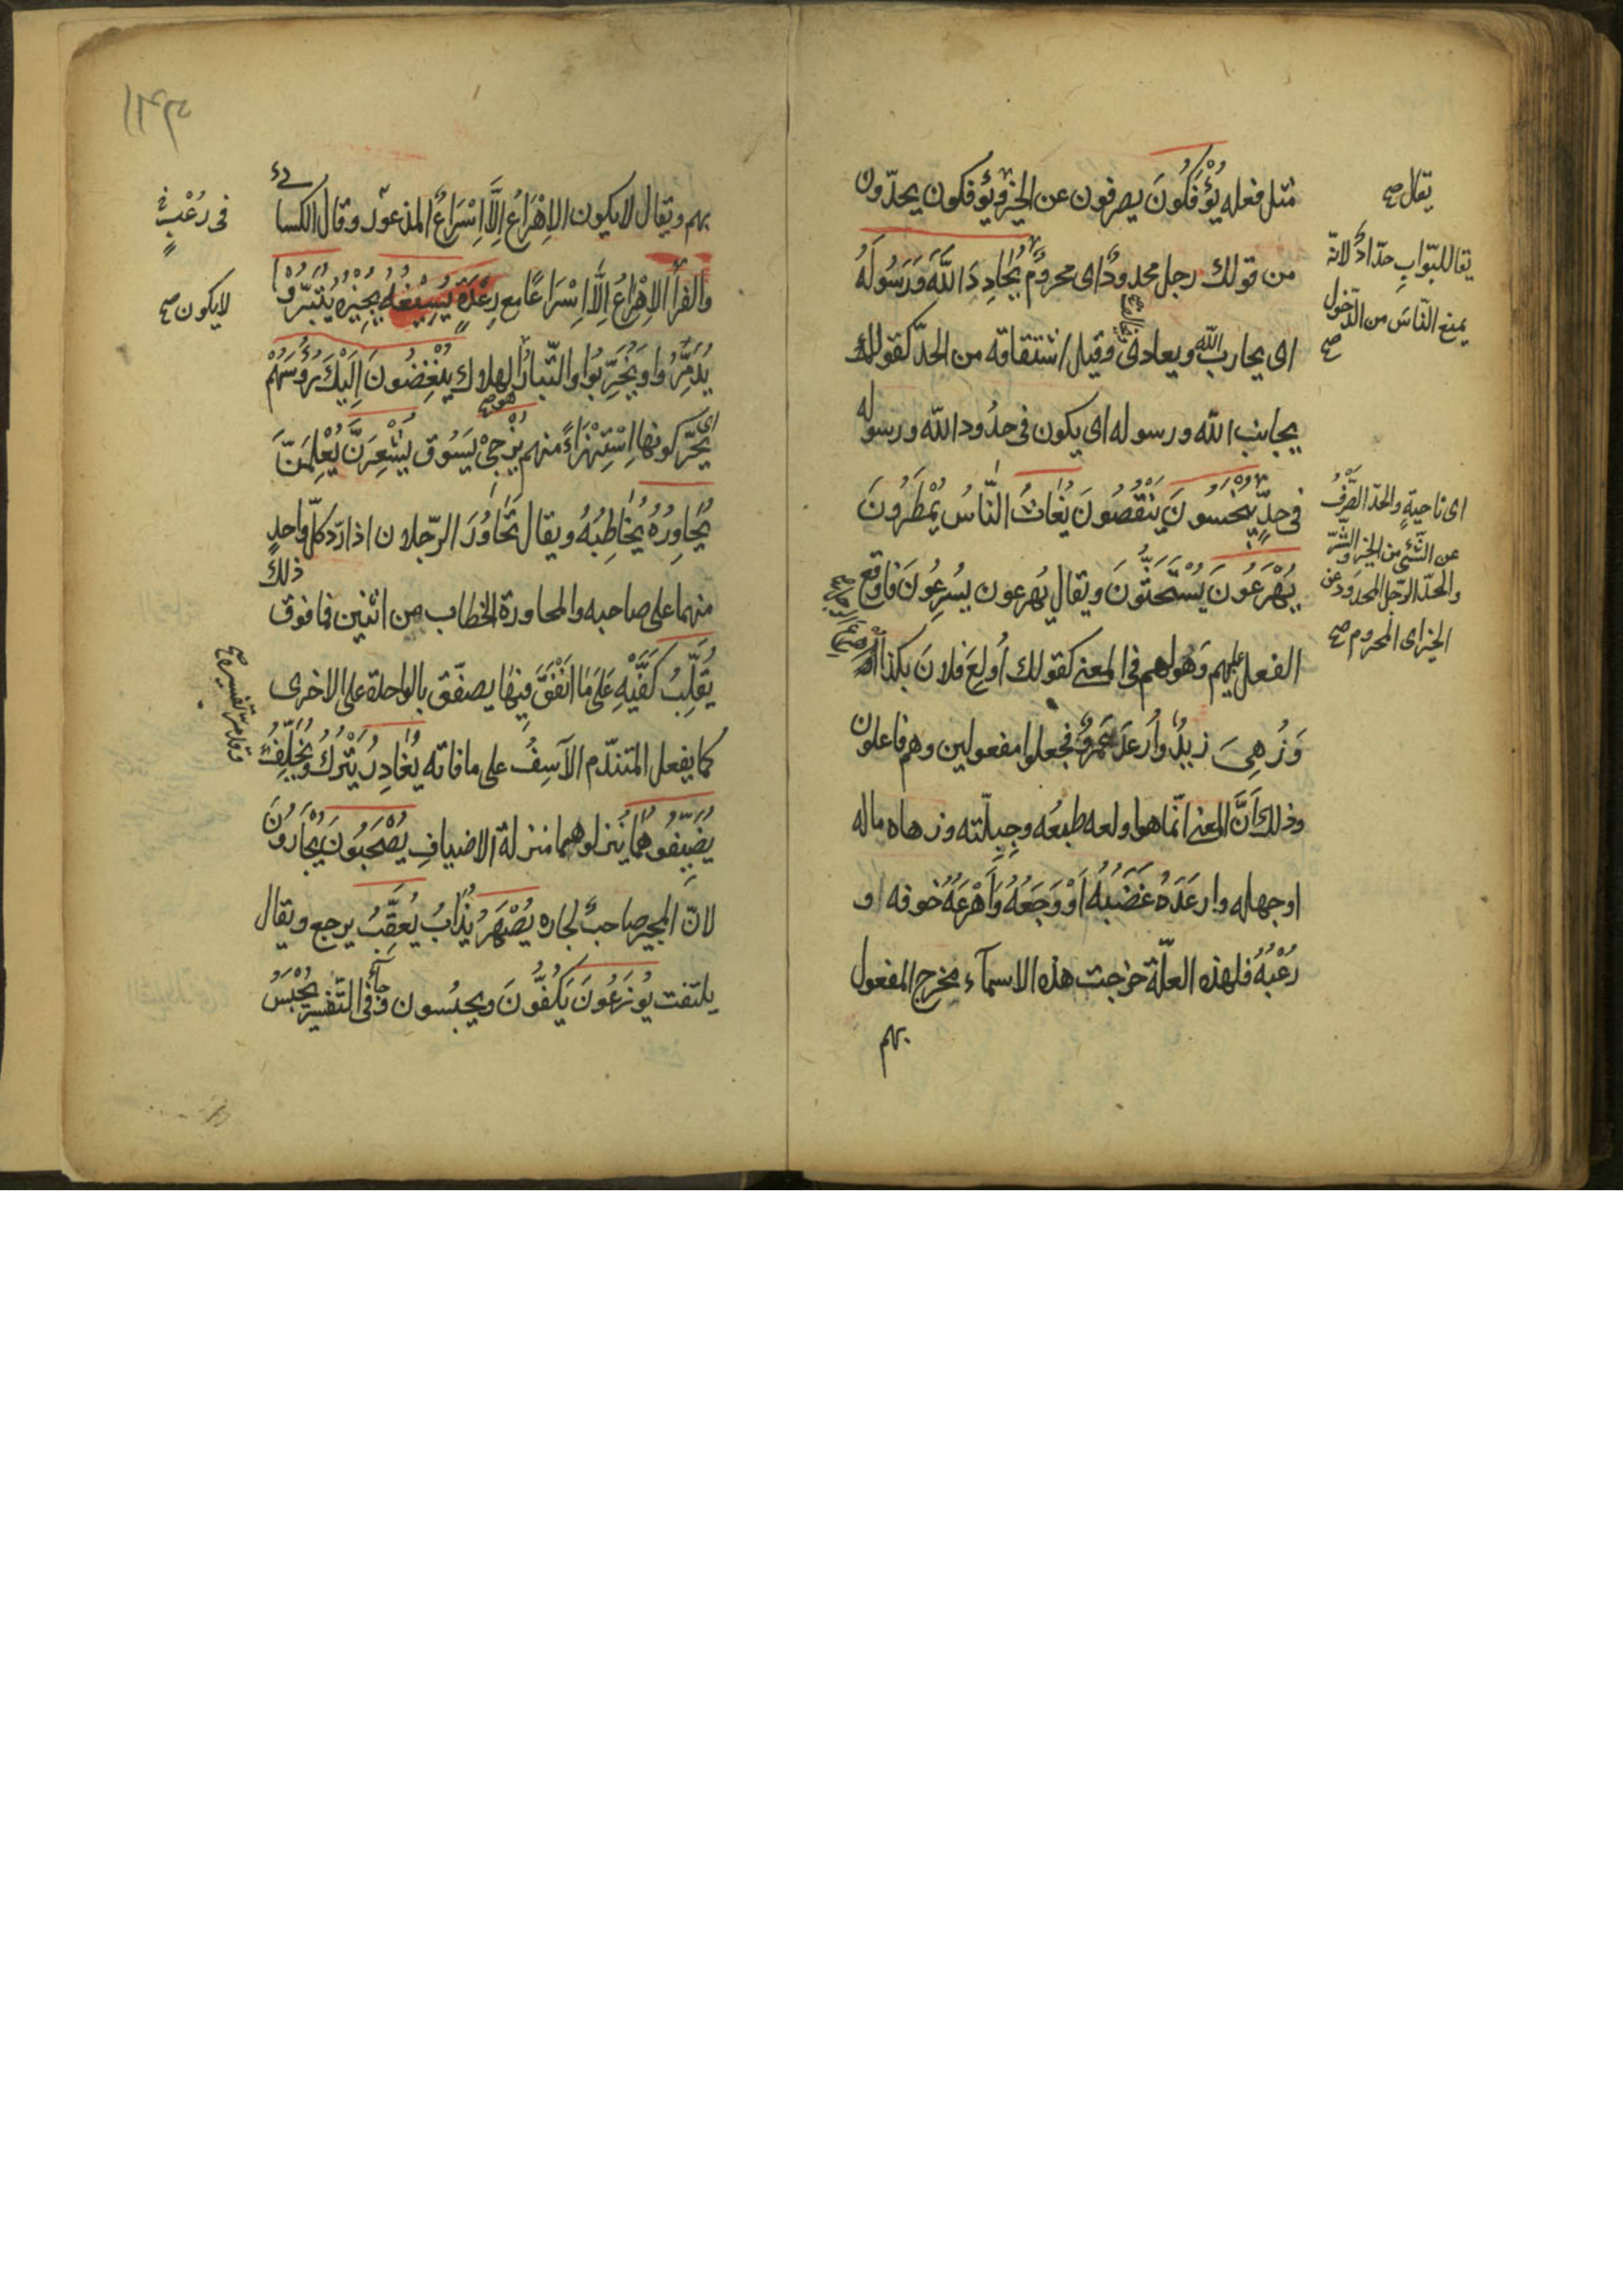 مثل فعله يُؤْفَكُونَ يصرفون عن الخير ويؤفكون يحدّون
من قولك رجل محدودٌ اى محرومٌ يُحَادِدَ اللَّهَ وَرَسُولَهُ
اى يحارب الله ويعادى وقيل اشتقاقه من الحدّ كقولك
يجانب الله ورسوله اى يكون فى حدُود الله ورسوله
فى حدٍّ يُبْخَسُونَ يُنْقَصُونَ يُغَاثُ النَّاسُ يُمْطَرُونَ
يُهْرَعُونَ يُسْتَحَثُّونَ ويقال يُهرعون يُسْرِعُونَ فاوقع
الفعل بهم وهو لهم فى المعنى كقولك أُولِعَ فلانٌ بكذا
وَزُهِىَ زيدٌ وأُرعِدَ عَمرٌو فجعلوا مفعولين وهم فاعلون
وذلك أَنَّ المعنى انّما هو اولعه طبعُه وجِبِلّته وزهاه ماله
او جهله وارعَدَهُ غَضَبُهُ أَوْ وَجَعُهُ وَأَهْرَعَهُ خوفه او
رُعْبُهُ فلهذه العلّة خرجت هذه الاسمآء مخرج المفعول
بهم
يقال صح
يقال للبوّاب حدّادٌ لانّه
يمنع النّاسَ من الدّخول
صح
اى ناحيةٍ والحدّ الصَّرْفُ
عن الشّىء من الخير والشّرّ
والحدّ الرّجل المحدود عن
الخير اى المحروم صح
بهم ويقال لا يكون الإِهْرَاعُ إِلَّا إِسْرَاعُ المذعور وقال الكسائى
والفرّأ الإِهْرَاعُ إِلَّا إِسْرَاعًا مع رِعْدَةٍ يُسِيْغُهُ يُجِيْزُهُ يُتَبِّرُوْا
يُدَمِّرُوا وَيُخَرِّبُوا والتّبارُ الهلاك يُنْغِضُونَ إِلَيْكَ رُؤُسَهُمْ
اى يحرّكونها اِسْتِهْزَاءً منهم يُزْجِىْ يَسُوْق يُشْعِرَنَّ يُعْلِمَنَّ
يُحَاوِرُهُ يُخَاطِبُهُ ويقال تَحَاوَرَ الرّجلان اذا ردّ كلّ واحدٍ
منهما على صاحبه والمحاورة الخطاب من اثنين فما فوق ذلك
يُقَلِّبُ كَفَّيْهِ عَلَى مَا أَنْفَقَ فِيْهَا يصفّق بالواحدة على الاخرى
كما يفعل المتندّم الآسِفُ على ما فاته يُغَادِرُ يَتْرُكُ وَيُخَلِّفُ
يُضَيِّفُوْهُمَا يُنزلوهما منزلة الاضيافِ يُصْحَبُونَ يُجَارُوْنَ
لانّ المجير صاحبٌ لجاره يُصْهَرُ يُذَابُ يُعَقِّبُ يرجع ويقال
يلتفت يُوْزَعُونَ يَكُفُّونَ ويحبسون وجآء فى التّفسير يُحْبَسُ
فى رُعْبٍ
لا يكون صح